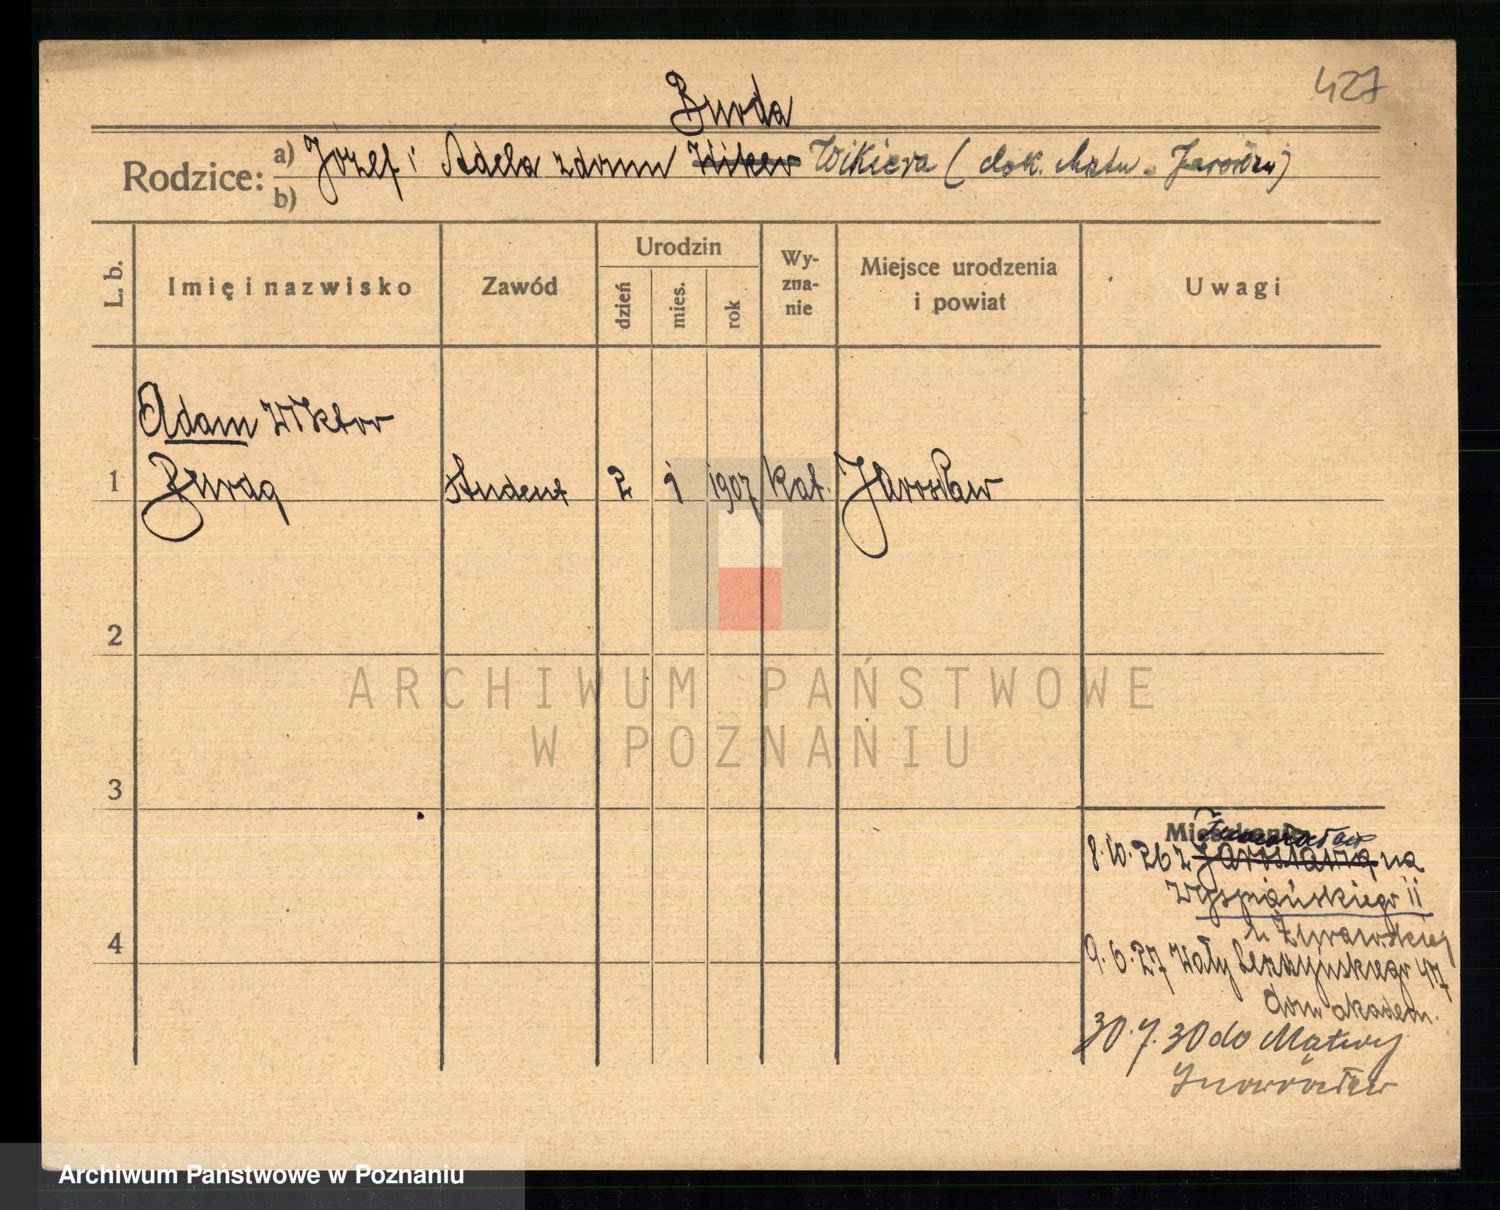 427
Burda
Rodzice: a) Józef i Adela z domu Wikier Wikiera (dok. Matu. Jarosław)
b)
L. b.
Imię i nazwisko
Zawód
Urodzin
dzień
mies.
rok
Wy-
zna-
nie
Miejsce urodzenia
i powiat
Uwagi
Adam Wiktor
1 Burda student 2 1 1907 kat. Jarosław
2
ARCHIWUM PAŃSTWOWE
W POZNANIU
3
Mieszkanie
Inowrocław
8.10.26 z Jarosławia na
Wyspiańskiego 11
u Żurawskiej
4
9.6.27 Wały Leszczyńskiego 47
Dom akadem.
30.7.30 do Mątwy
Inowrocław
Archiwum Państwowe w Poznaniu